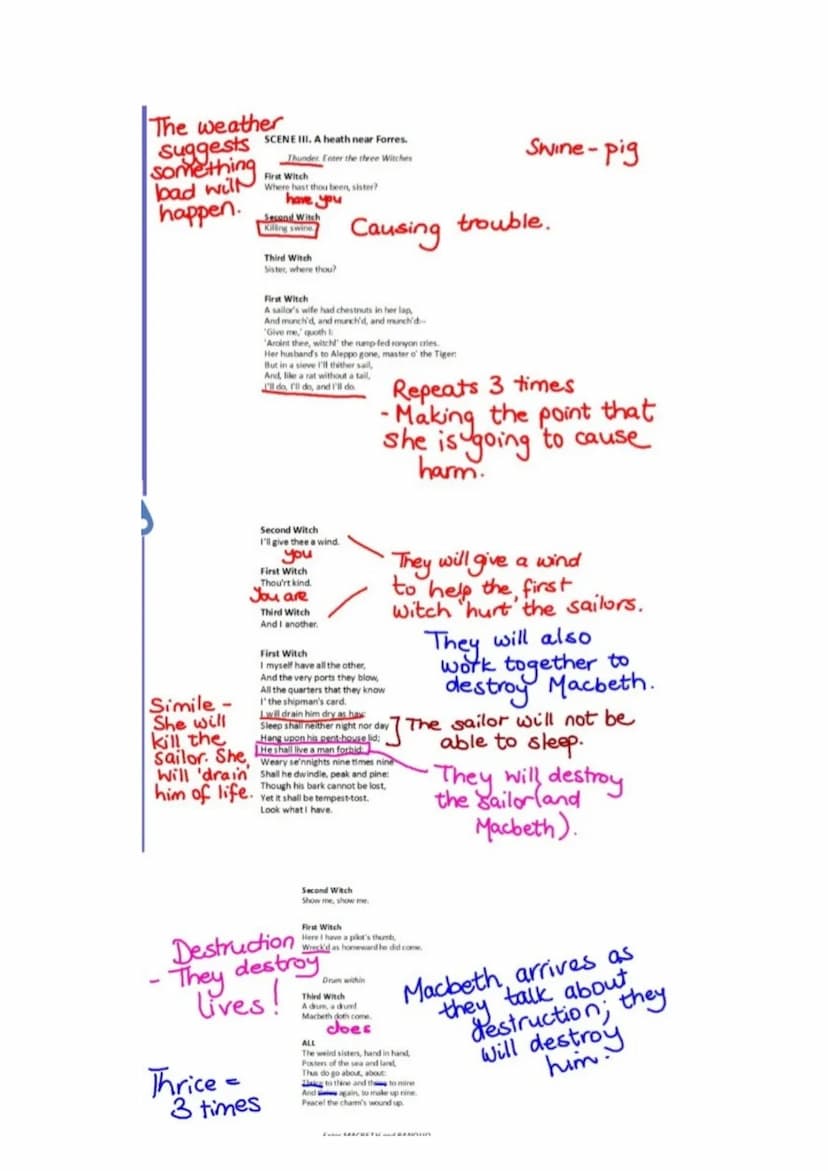 The weather
suggests
something
bad will
happen.
SCENE III. A heath near Forres.
Thunder. Enter the three Witches
Swine - pig
First Witch
Where hast thou been, sister?
have you
Second Witch
Killing swine.
Causing trouble.
Third Witch
Sister, where thou?
First Witch
A sailor's wife had chestnuts in her lap,
And munch'd, and munch'd, and munch'd:--
'Give me,' quoth I:
'Aroint thee, witch!' the rump-fed ronyon cries.
Her husband's to Aleppo gone, master o' the Tiger:
But in a sieve I'll thither sail,
And, like a rat without a tail,
I'll do, I'll do, and I'll do.
Repeats 3 times
- Making the point that
she is going to cause
harm.
Second Witch
I'll give thee a wind.
you
First Witch
Thou'rt kind.
You are
Third Witch
And I another.
They will give a wind
to help the first
witch 'hurt' the sailors.
They will also
work together to
destroy Macbeth.
First Witch
I myself have all the other,
And the very ports they blow,
All the quarters that they know
I' the shipman's card.
I will drain him dry as hay:
Sleep shall neither night nor day
Hang upon his pent-house lid;
He shall live a man forbid:
Weary se'nnights nine times nine
Shall he dwindle, peak and pine:
Though his bark cannot be lost,
Yet it shall be tempest-tost.
Look what I have.
Simile -
She will
kill the
sailor. She
will 'drain'
him of life.
The sailor will not be
able to sleep.
They will destroy
the sailor (and
Macbeth).
Second Witch
Show me, show me.
First Witch
Here I have a pilot's thumb,
Wreck'd as homeward he did come.
Destruction
- They destroy
lives!
Drum within
Third Witch
A drum, a drum!
Macbeth doth come.
does
Macbeth arrives as
they talk about
destruction; they
will destroy
him.
ALL
The weird sisters, hand in hand,
Posters of the sea and land,
Thus do go about, about:
Thrice to thine and thrice to mine
And thrice again, to make up nine.
Peace! the charm's wound up.
Thrice =
3 times
Enter MACBETH and BANQUO